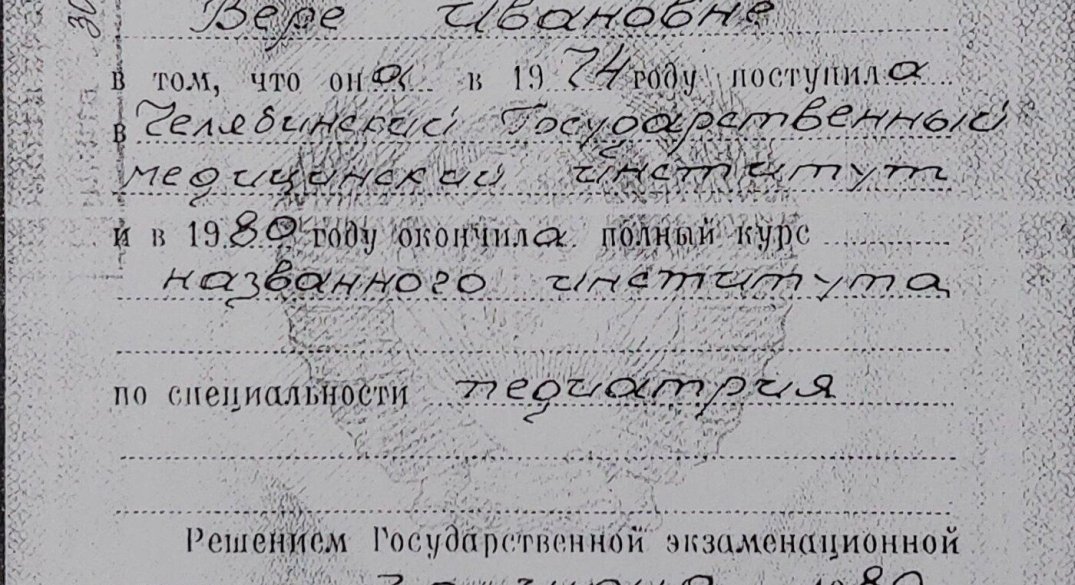 Вере Ивановне
в том, что она в 1974 году поступила
в Челябинский Государственный
медицинский институт
и в 1980 году окончила полный курс
названного института
по специальности педиатрия
Решением Государственной экзаменационной